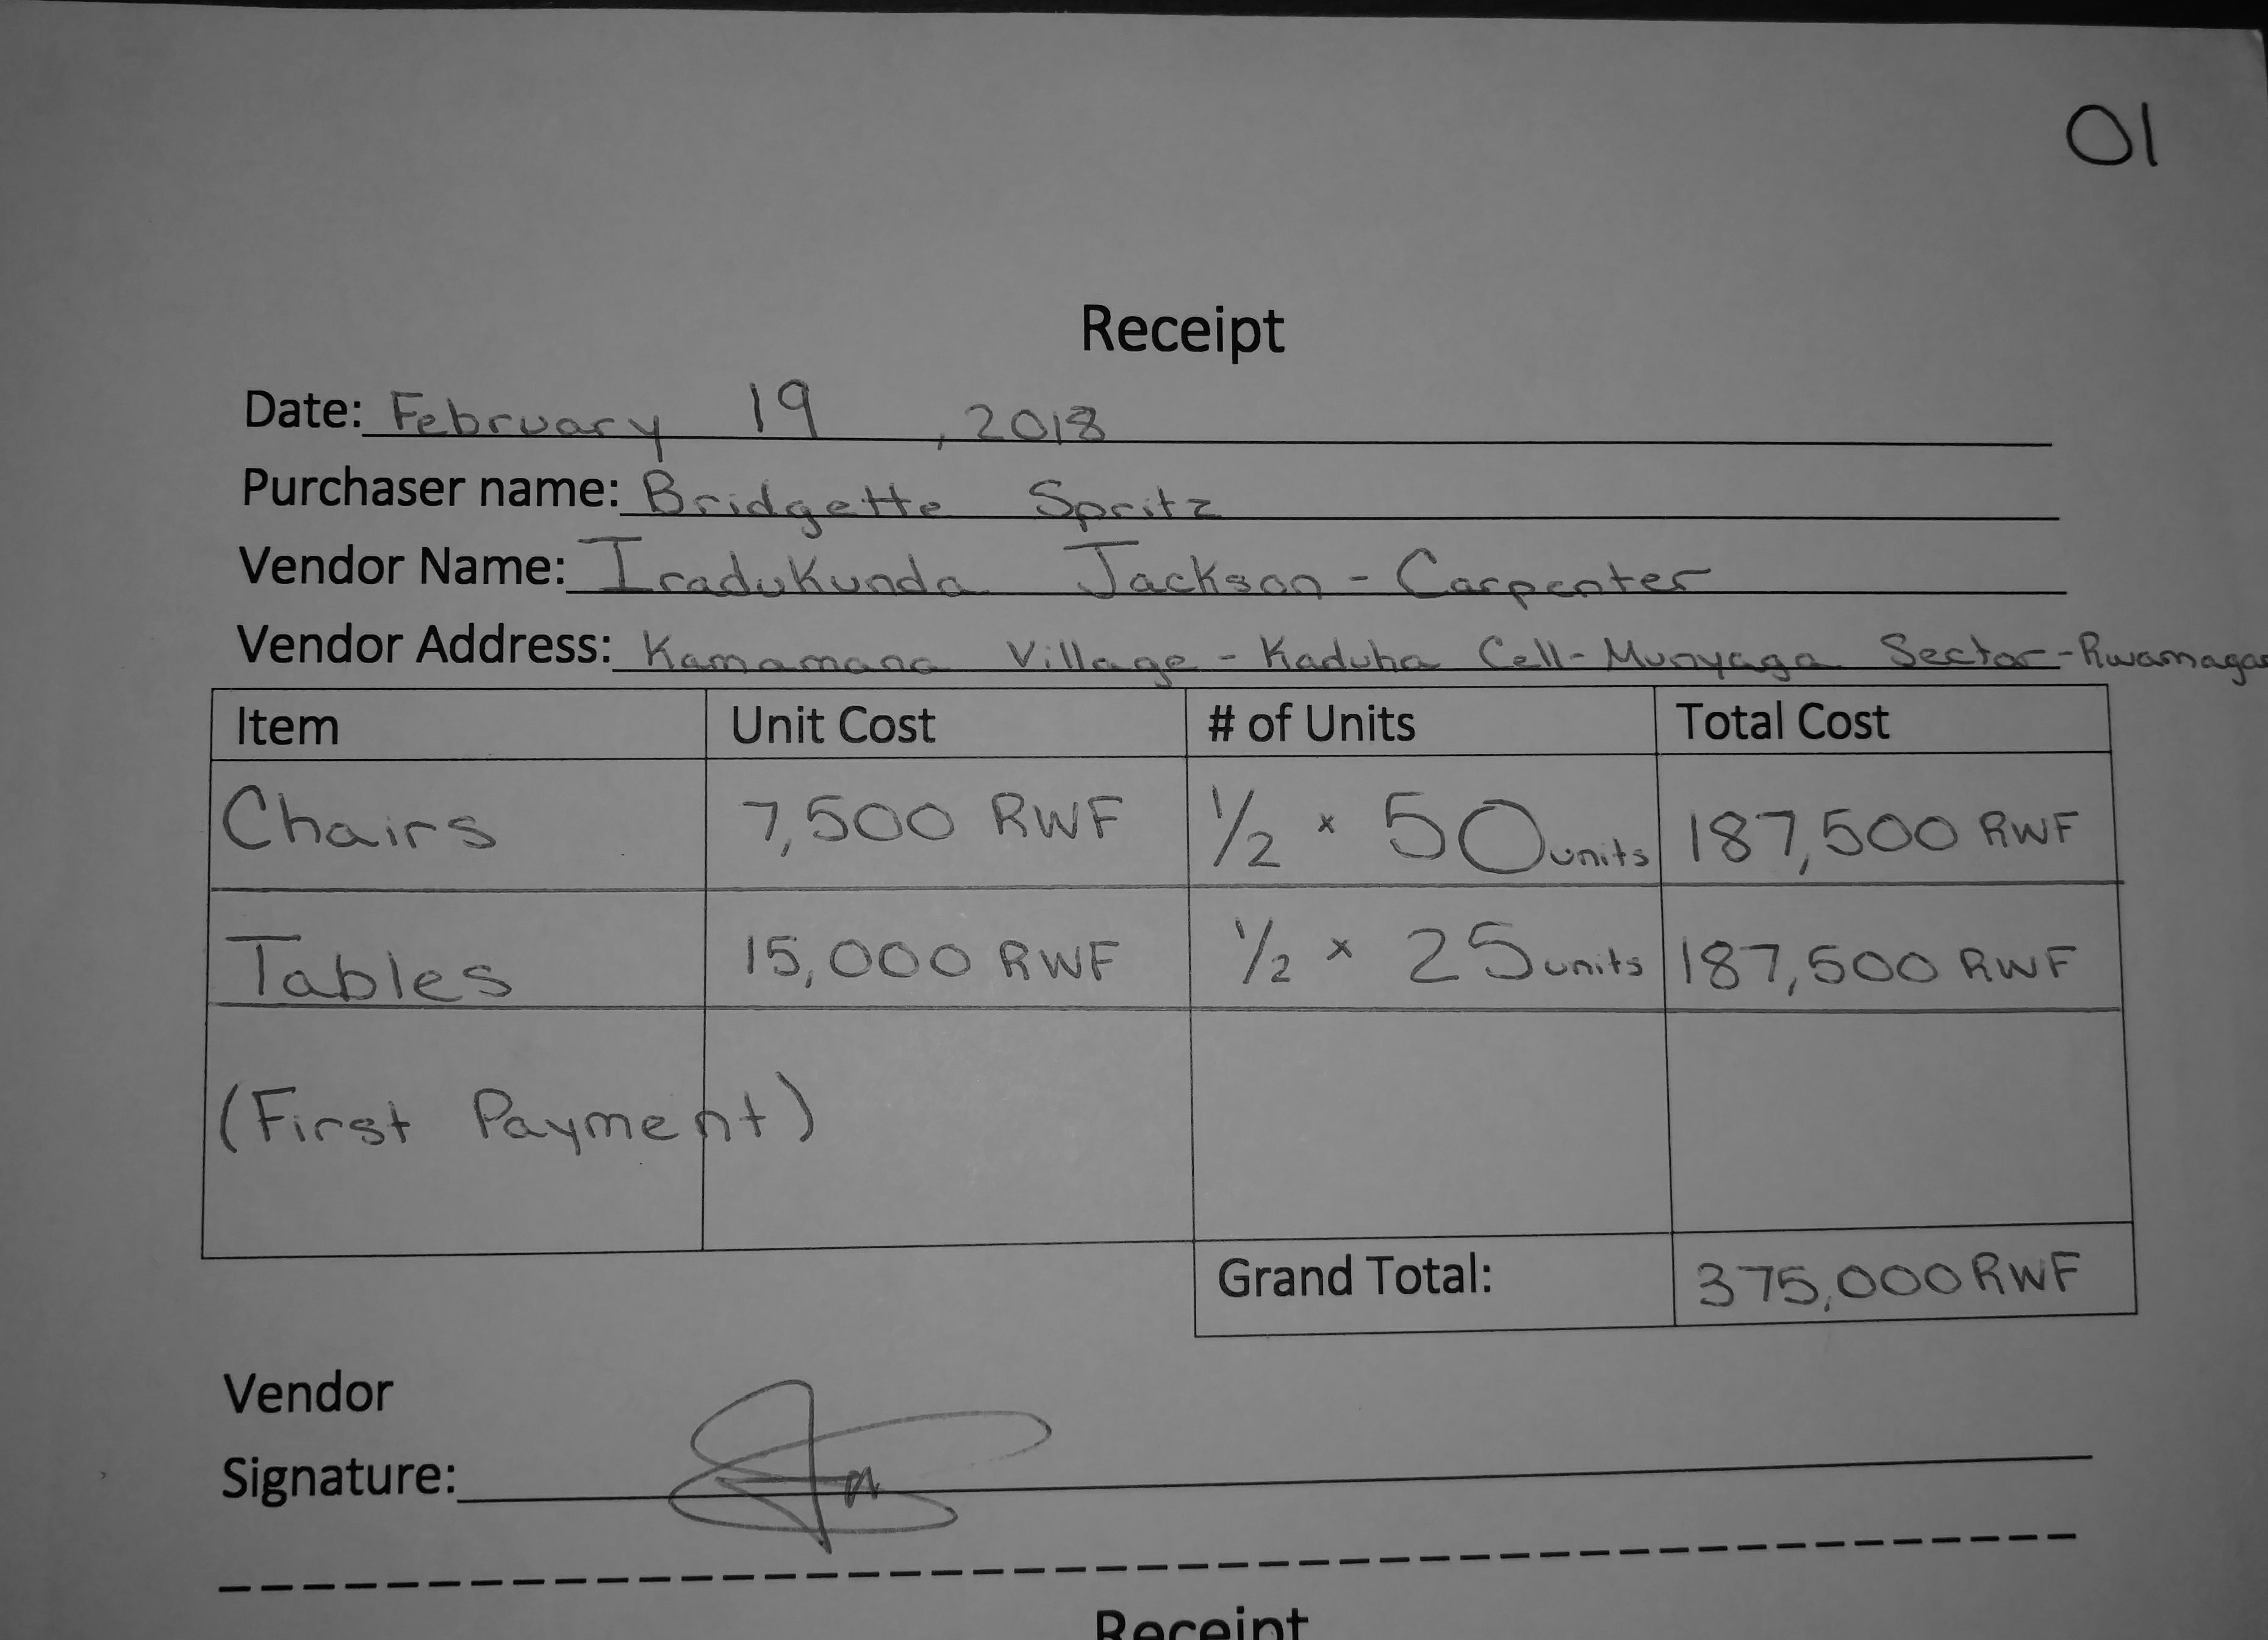 01
Receipt
Date: February 19, 2018
Purchaser name: Bridgette Spritz
Vendor Name: Iradukunda Jackson - Carpenter
Vendor Address: Kamamana Village - Kaduha Cell - Munyaga Sector - Rwamagana
Item Unit Cost # of Units Total Cost
Chairs 7,500 RWF 1/2 x 50 units 187,500 RWF
Tables 15,000 RWF 1/2 x 25 units 187,500 RWF
(First Payment)
Grand Total: 375,000 RWF
Vendor
Signature:
Receipt